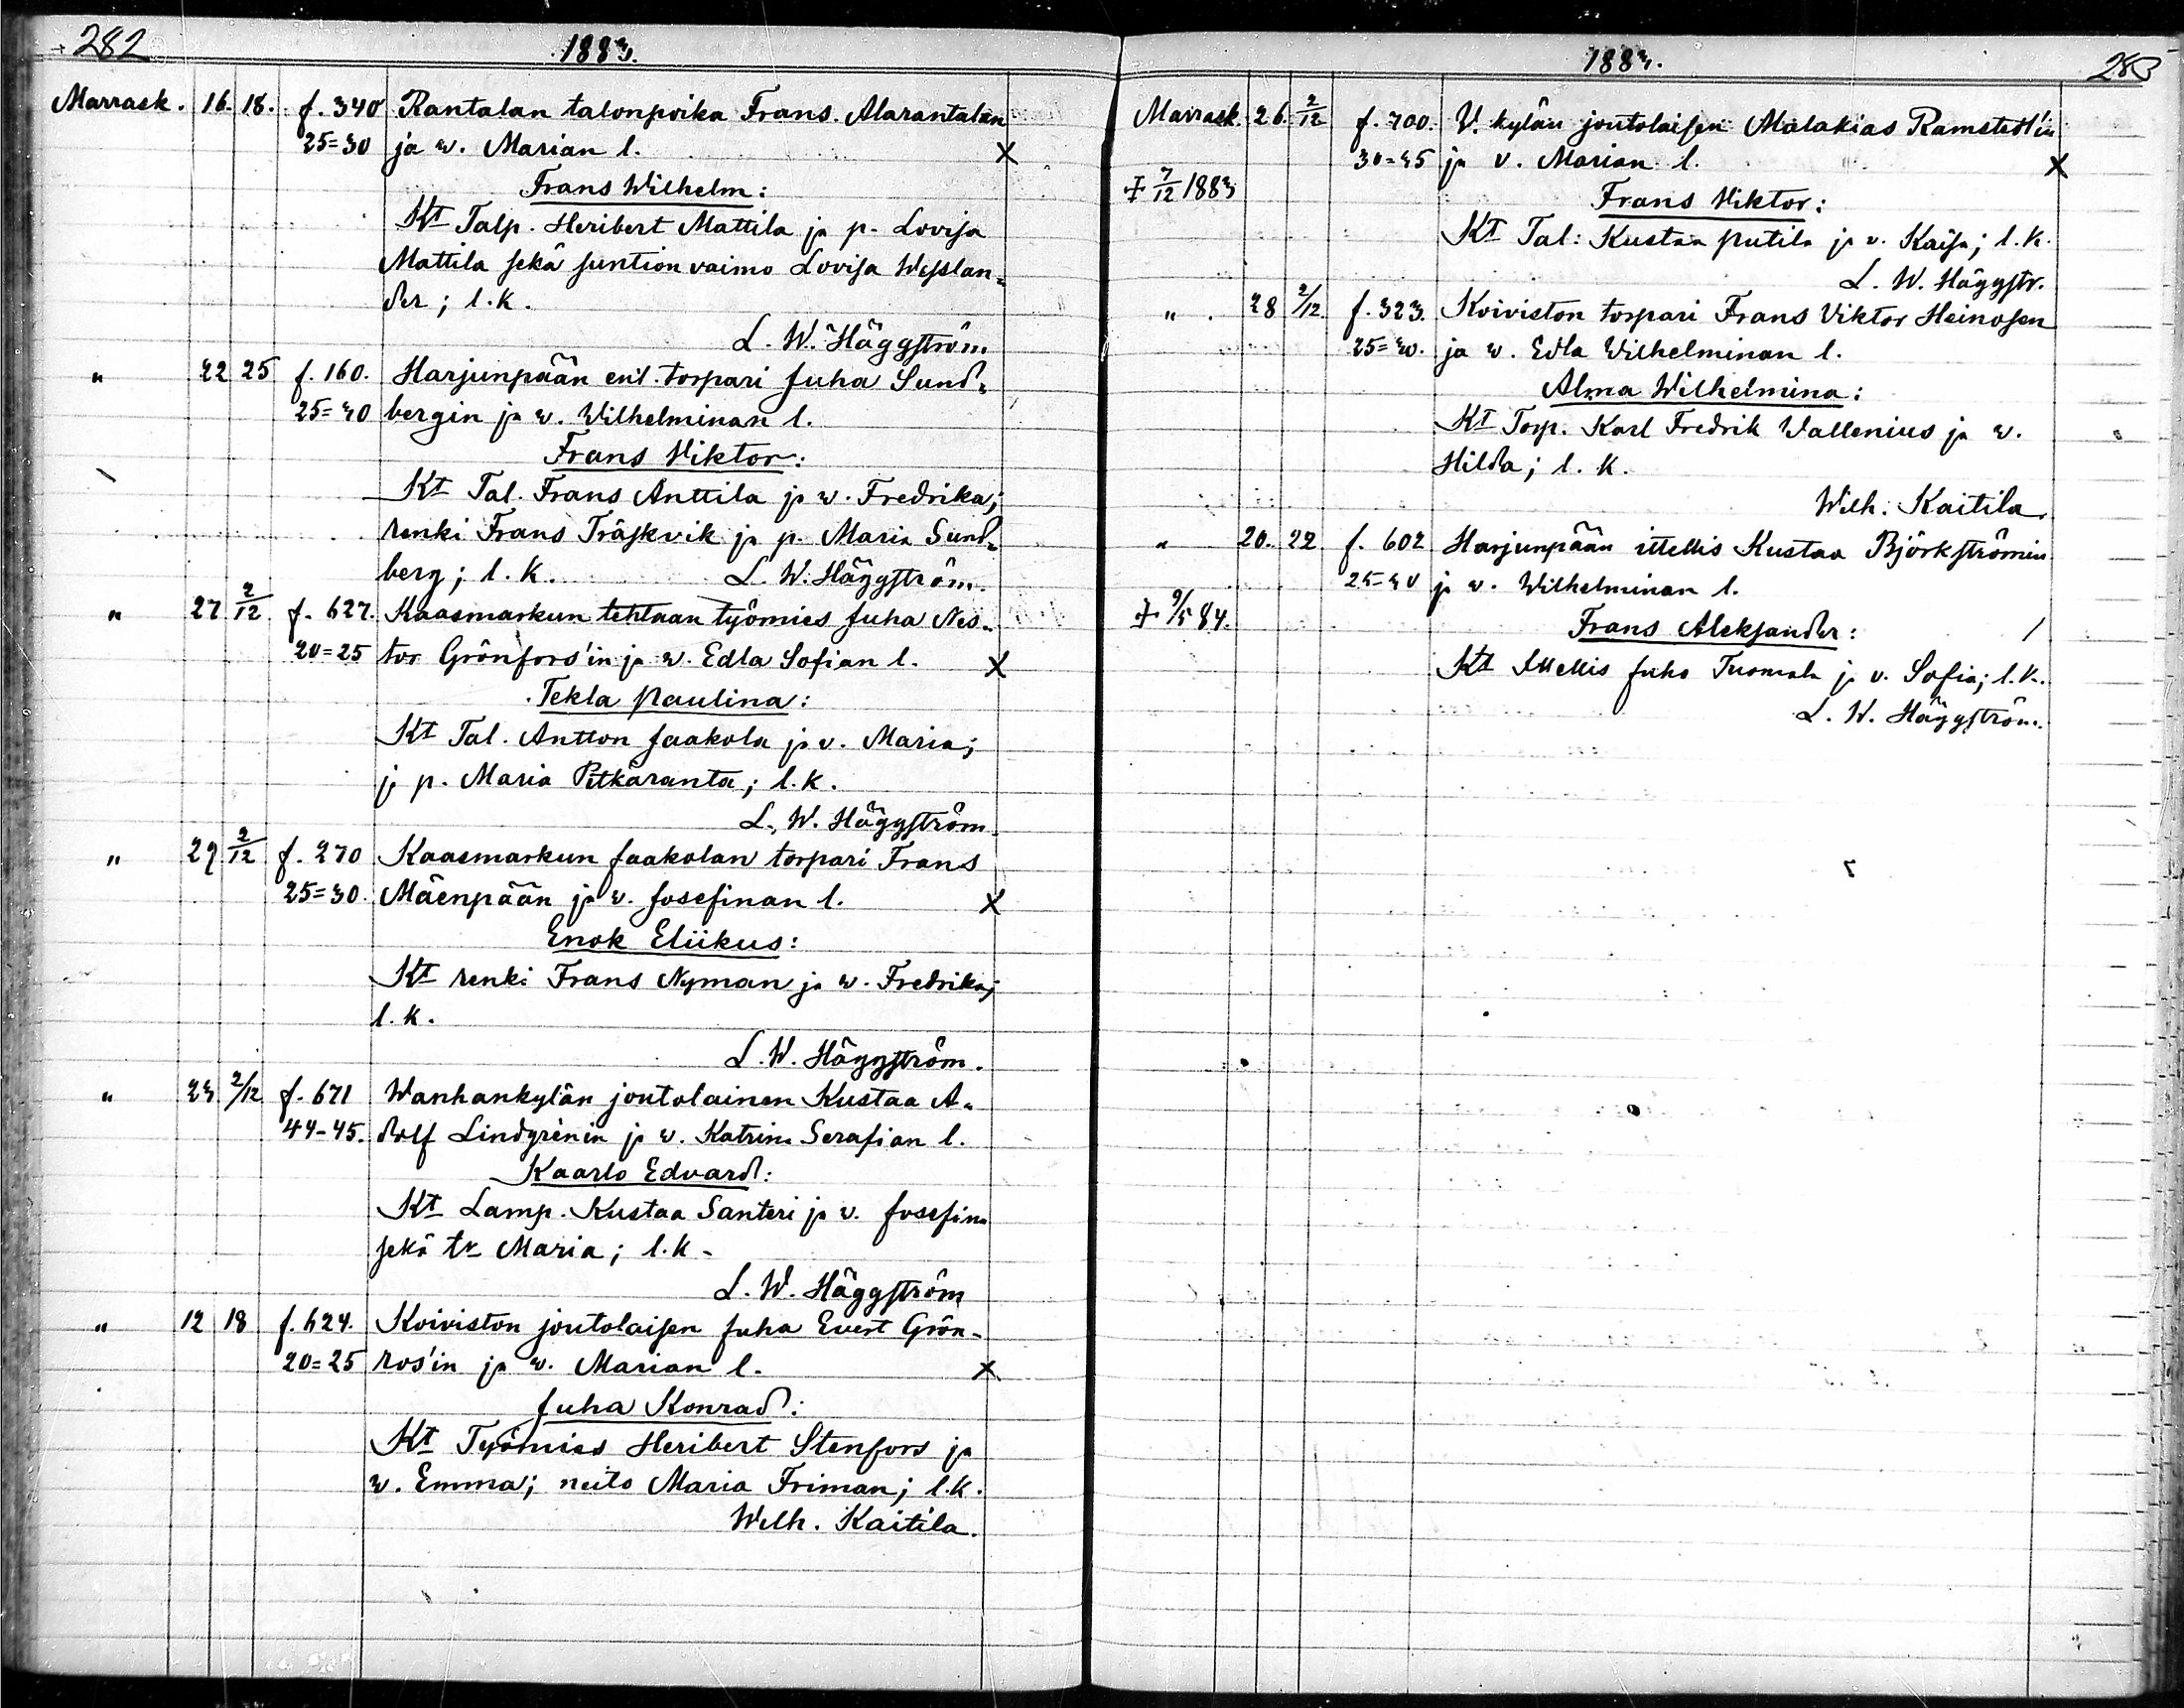 282
1883.
Marrask. 16. 18. f. 340 Rantalan talonpoika Frans Alarantalan
25=30 ja w. Marian l. X
Frans Wilhelm:
Kt Talp. Heribert Mattila ja p. Lovisa
Mattila sekä suntion vaimo Lovisa Wesslan-
der; l.k.
L. W. Häggström.
" 22 25 f. 160. Harjunpään ent. torpari Juha Sund-
25=30 bergin ja w. Wilhelminan l.
Frans Viktor:
Kt Tal. Frans Anttila ja w. Fredrika;
renki Frans Träskvik ja p. Maria Sund-
berg; l.k. L. W. Häggström.
" 27 2/12 f. 627. Kaasmarkun tehtaan työmies Juha Nes-
20=25 tor Grönfors'in ja w. Edla Sofian l. X
Tekla Paulina:
Kt Tal. Antton Jaakola ja v. Maria;
ja p. Maria Pitkäranta; l.k.
L. W. Häggström.
" 29 2/12 f. 270 Kaasmarkun Jaakolan torpari Frans
25=30. Mäenpään ja w. Josefinan l. X
Enok Eliikus:
Kt renki Frans Nyman ja w. Fredrika;
l.k.
L. W. Häggström.
" 23 2/12 f. 671 Wanhankylän joutolainen Kustaa A-
44-45. dolf Lindgrénin ja w. Katrina Serafian l.
Kaarlo Edvard:
Kt Lamp. Kustaa Santeri ja v. Josefina
sekä tr Maria; l.k.
L. W. Häggström
" 12 18 f. 624. Koiviston joutolaisen Juha Evert Grön-
20=25 ros'in ja w. Marian l. X
Juha Konrad:
Kt Työmies Heribert Stenfors ja
w. Emma; neito Maria Friman; l.k.
Wilh. Kaitila.
1883.
283
Marrask. 26 2/12 f. 700. V. kylän joutolaisen Malakias Ramstedt'in
30=35 ja v. Marian l. X
‡ 7/12 1883 Frans Viktor:
Kt Tal: Kustaa Putila ja v. Kaisa; l.k.
L. W. Häggstr.
" 28 2/12 f. 323. Koiviston torpari Frans Viktor Heinosen
25=30. ja w. Edla Wilhelminan l.
Alma Wilhelmina:
Kt Torp. Karl Fredrik Wallenius ja w.
Hilda; l.k.
Wilh. Kaitila.
" 20. 22 f. 602 Harjunpään ittellis Kustaa Björkströmin
25=30 ja w. Wilhelminan l.
‡ 9/5 84. Frans Aleksander: /
Kt Ittellis Juho Tuomala ja v. Sofia; l.k.
L. W. Häggström.